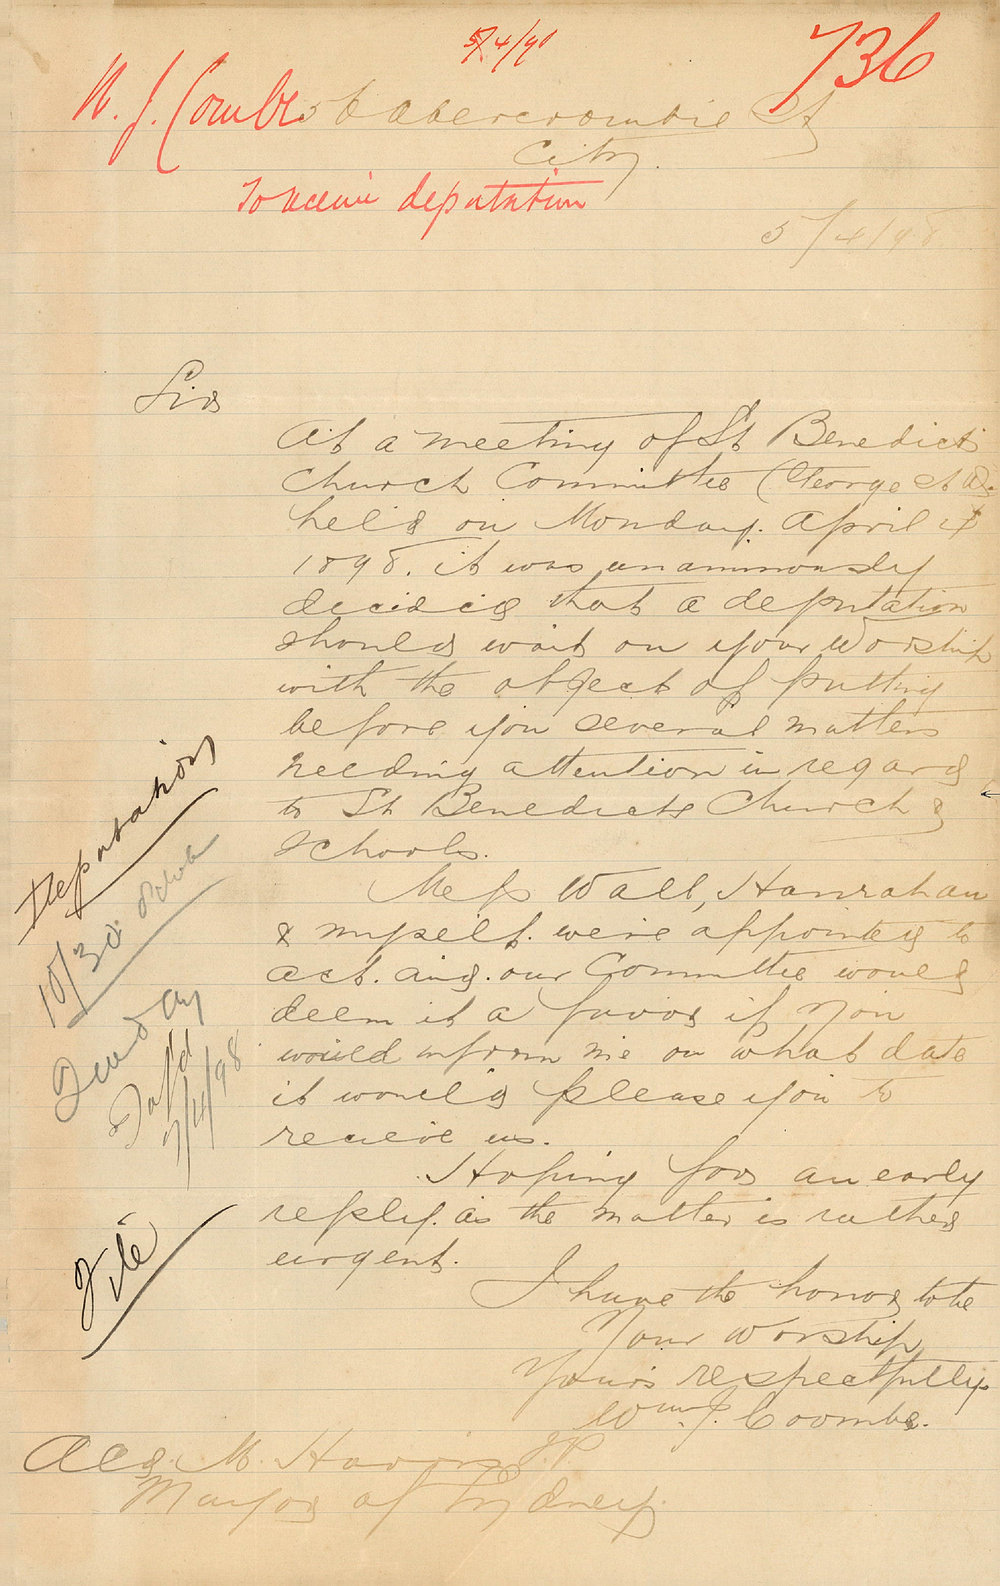 5/4/98
736
W. J. Combes
56 Abercrombie St
City.
To receive deputation
5/4/98
Sir
At a meeting of St Benedicts
Church Committee (George St W.)
held on Monday. April 4
1898. it was unanimously
decided that a deputation
should wait on your Worship
with the object of putting
before you several matters
needing attention in regard
to St Benedicts Church &
Schools.
Mess Wall, Hanrahan
& myself. were appointed to
act. and. our Committee would
deem it a favor if you
would inform me on what date
it would please you to
recieve us.
Hoping for an early
reply. as the matter is rather
urgent.
I have the honor to be
Your Worship
Yours respectfully
Wm. J. Coombs.
Ald. M. Harris J.P.
Mayor of Sydney.
Deputation
10/30 oclock
Tuesday
Inf'd
7/4/98
File